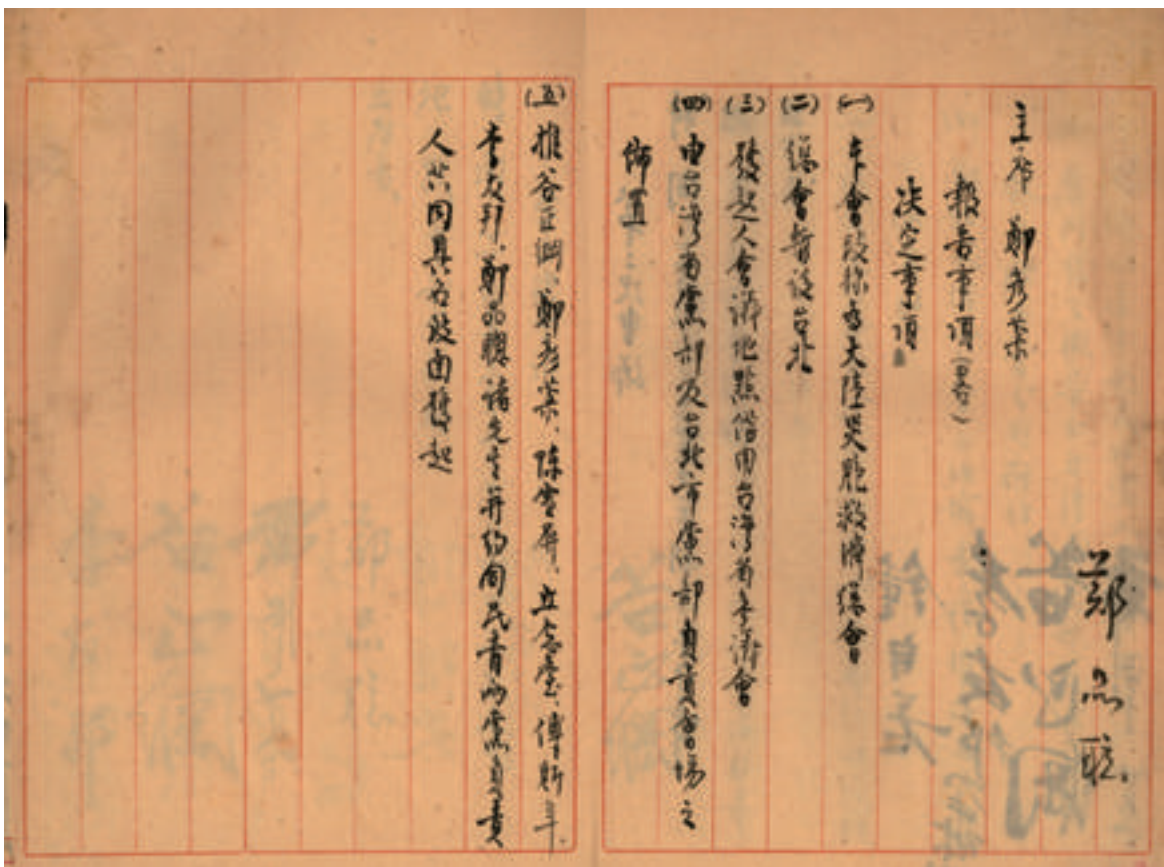 鄭品聰
主席 鄭彥棻
報告事項（畧）
決定事項
(一) 本會改稱為大陸災胞救濟總會
(二) 總會暫設台北
(三) 發起人會議地點借用台灣省參議會
(四) 由台灣省黨部及台北市黨部負責會場之
佈置
(五) 推谷正綱、鄭彥棻、陳雪屏、丘念台、傅斯年、
李友邦、鄭品聰諸先生并約同民青兩黨負責
人共同具名疏函發起